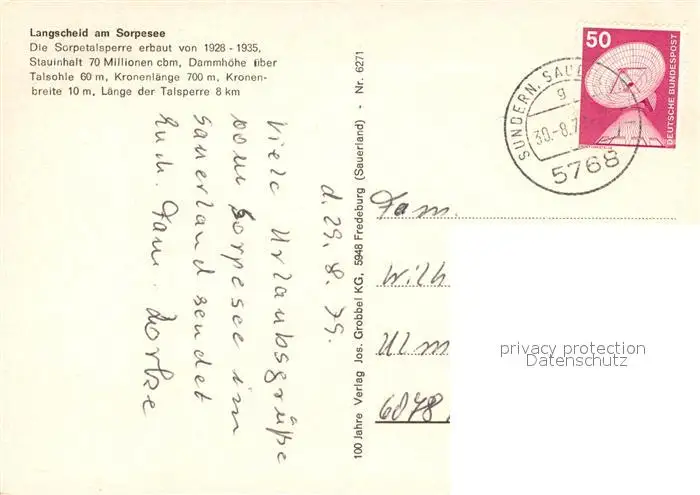 Langscheid am Sorpesee
Die Sorpetalsperre erbaut von 1928 - 1935,
Stauinhalt 70 Millionen cbm, Dammhöhe über
Talsohle 60 m, Kronenlänge 700 m, Kronen-
breite 10 m, Länge der Talsperre 8 km
d. 29. 8. 79.
Viele Urlaubsgrüße
vom Sorpesee im
Sauerland sendet
Euch. Fam.
100 Jahre Verlag Jos. Grobbel KG, 5948 Fredeburg (Sauerland) - Nr. 6271
50
DEUTSCHE BUNDESPOST
SUNDERN, SAU
g
30.-8.7
5768
Fam.
Wilh
Ulm
6078
privacy protection
Datenschutz